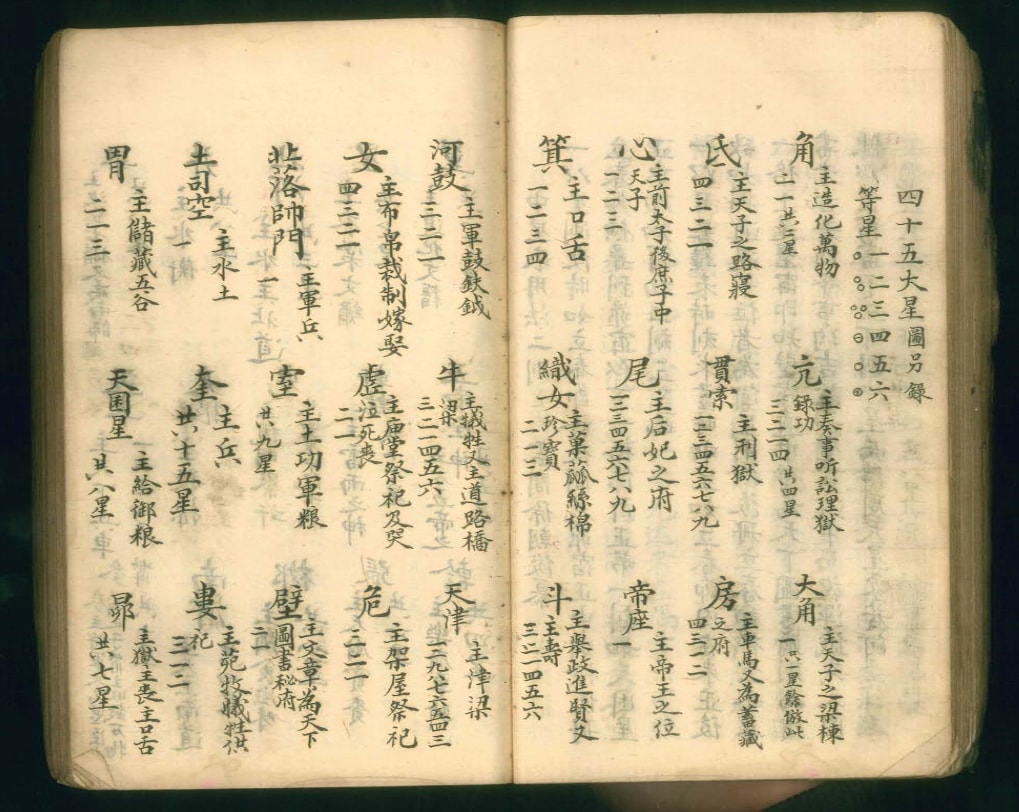 四十五大星圖另錄
等星 一二三四五六
角
主造化萬物
二一共二星
亢
主奏事听訟理獄
錄功
三二一四共四星
大角
主天子之梁棟
一共一星餘倣此
氐
主天子之路寢
四三二一
貫索
主刑獄
一二三四五六七八九
房
主車馬又為蓄藏
之府
四三一二
心
主前太子後庶子中
天子
一二三
尾
主后妃之府
一二三四五六七八九
帝座
主帝王之位
一
箕
主口舌
一二三四
織女
主菓蓏絲棉
珍寶
二一三
斗
主舉政進賢又
主壽
三二一四五六
河鼓
主軍鼓鈇鉞
三二一
牛
主犧牲又主道路橋
梁
三二一四五六
天津
主津梁
一二九八七六五四三
女
主布帛裁制嫁娶
四三二一
虛
主庙堂祭祀及哭
泣死喪
二一
危
主架屋祭祀
三二一
北落帥門
主軍兵
一
室
主土功軍粮
共九星
壁
主文章為天下
圖書秘府
二一
土司空
主水土
一
奎
主兵
共十五星
婁
主苑牧犧牲供
祀
三一二
胃
主儲藏五谷
二一三
天囷星
主給御粮
共八星
昴
主獄主喪主口舌
共七星